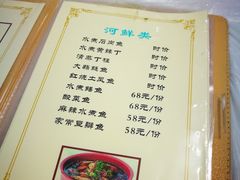 河鲜类
水煮石岩鱼 时价
水煮黄辣丁 时价
清蒸丁桂 时价
大蒜鲢鱼 时价
红烧土花鱼 时价
水煮鳝鱼 68元/份
酸菜鱼 68元/份
麻辣水煮鱼 58元/份
家常豆瓣鱼 58元/份